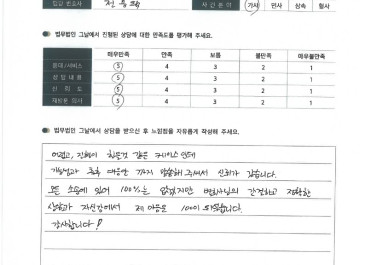 담당 변호사
사건 분야 가사 민사 상속 형사
● 법무법인 그날에서 진행된 상담에 대한 만족도를 평가해 주세요.
매우만족 만족 보통 불만족 매우불만족
응대/서비스 5 4 3 2 1
상담내용 5 4 3 2 1
신뢰도 5 4 3 2 1
재방문 의사 5 4 3 2 1
● 법무법인 그날에서 상담을 받으신 후 느낀점을 자유롭게 작성해 주세요.
어렵고, 진행이 힘든것 같은 케이스 인데
가능성과 추후 대응안 까지 말씀해 주셔서 신뢰가 갑니다.
모든 소송에 있어 100%는 없겠지만 변호사님의 간결하고 정확한
상담과 자신감에서 제 마음은 100이 되었습니다.
감사합니다!